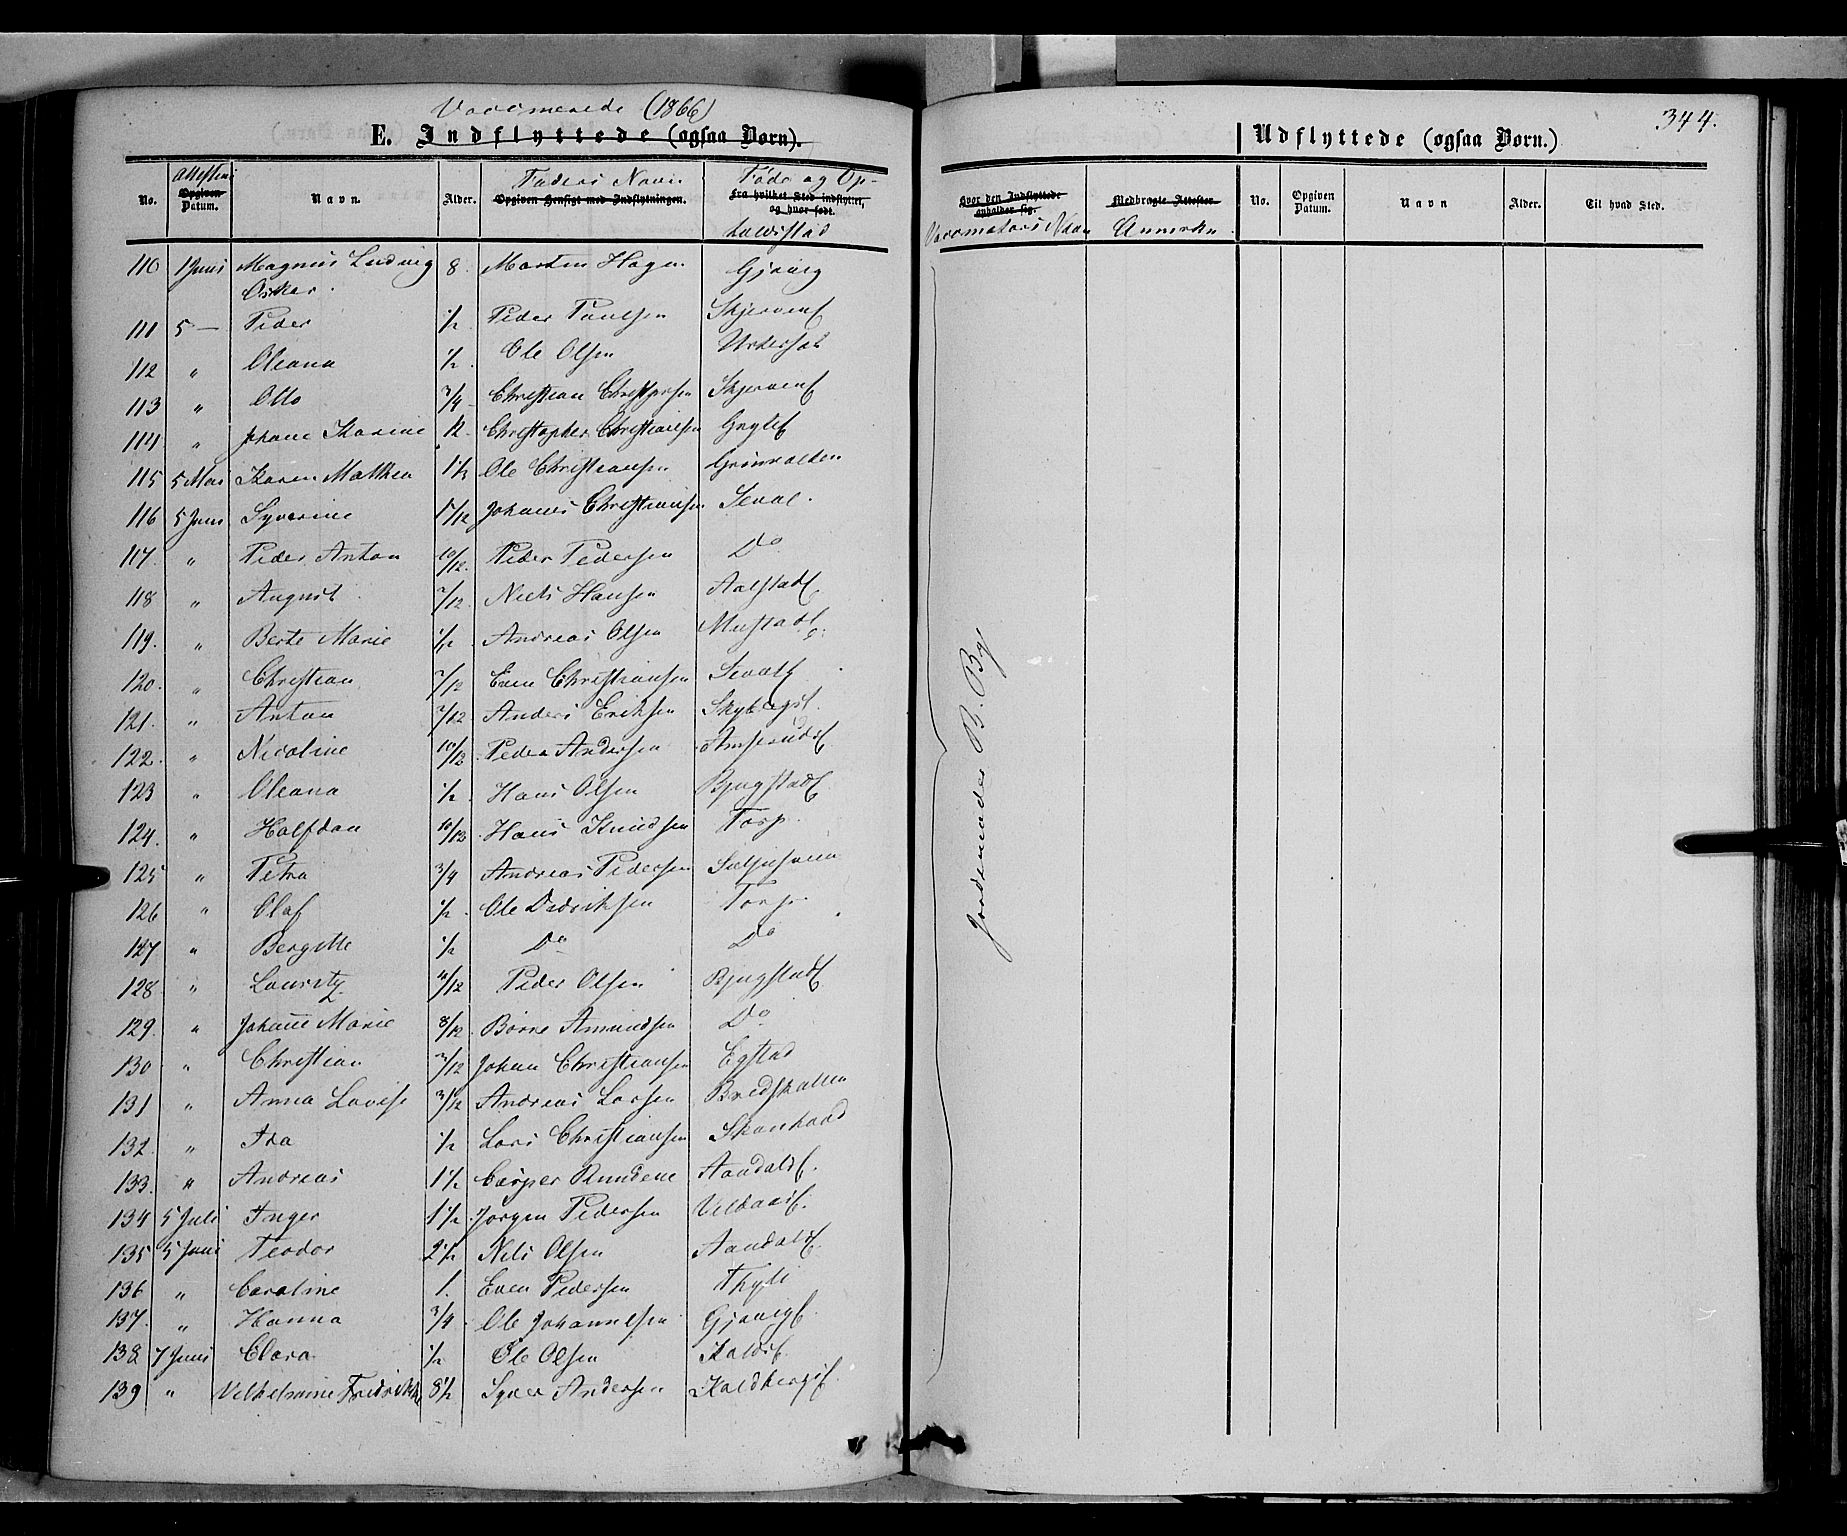 Vaccinerede (1866)
E. Indflyttede (ogsaa Børn).
Udflyttede (ogsaa Børn.)
344.
No. Attestens Opgiven Datum. Navn. Alder. Faders Navn Opgiven Hensigt med Indflytningen. Føde og Op- Fra hvilket Sted indflyttet, og hvor født. holdsstad
Hvor den Indflyttede opholder sig. Vaccinators Navn Medbragte Attester Anmerkn. No. Opgiven Datum. Navn Alder. Til hvad Sted.
110 1 Juni Magnus Ludvig 8. Morten Hagen Gjøvig
Oskar.
111 5 — Peder 1/2 Peder Paulsen Skjerven
112 " Oleana 1/2. Ole Olsen
113 " Otto 3/4 Christian Skjerven
114 " Johane Karine 12. Christopher Christiansen
115 5 Mai Karen Mathea 1 1/2 Ole Christiansen
116 5 Juni Syverine Johanes Christiansen Seval.
117. " Peder Anton 10/12. Peder Pedersen Do
118 " August 7/12 Niels Hansen
119. " Berte Marie 1/2 Andreas Olsen Mustad
120. " Christian 7/12 Even Christiansen
121. " Anton 7/12 Anders Eriksen
122. " Nicoline 10/12 Peder Andersen
123 " Oleana 1/2. Hans Olsen
124. " Halfdan 10/12. Hans Knudsen Torp.
125 " Petra 3/4 Andreas Pedersen
126 " Olaf 1/2. Ole Didriksen Torp.
127 " Bergitte 1/2 Do Do
128. " Lauritz 4/12 Peder Olsen
129. " Johane Marie 8/12. Børre Amundsen Do
130 " Christian 7/12 Johan Christiansen Egstad
131 " Anna Lovise 3/12 Andreas Larsen
132. " Ida 1/2 Lars Christiansen
133. " Andreas 1 1/2 Casper
134 5 Juli Inger 1 1/2. Jørgen Pedersen
135 5 Juni Teodor 2 1/2 Nils Olsen
136 " Caroline 1. Even Pedersen
137. " Hanna 3/4. Ole Johannesen
138 7 Juni Clara 1/2 Ole Olsen
139 " Vilhelmine Fredrikke 8 1/2 Syver Andersen
Jordemoder B. By